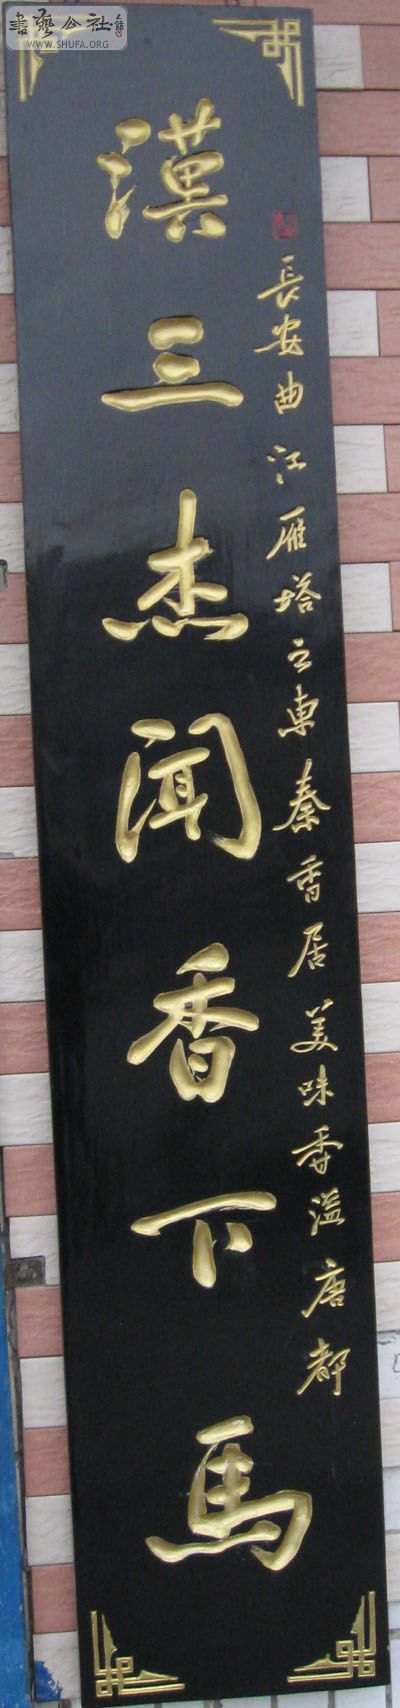 書藝公社
WWW.SHUFA.ORG
長安曲江雁塔之東秦香居美味香溢唐都
漢三杰聞香下馬